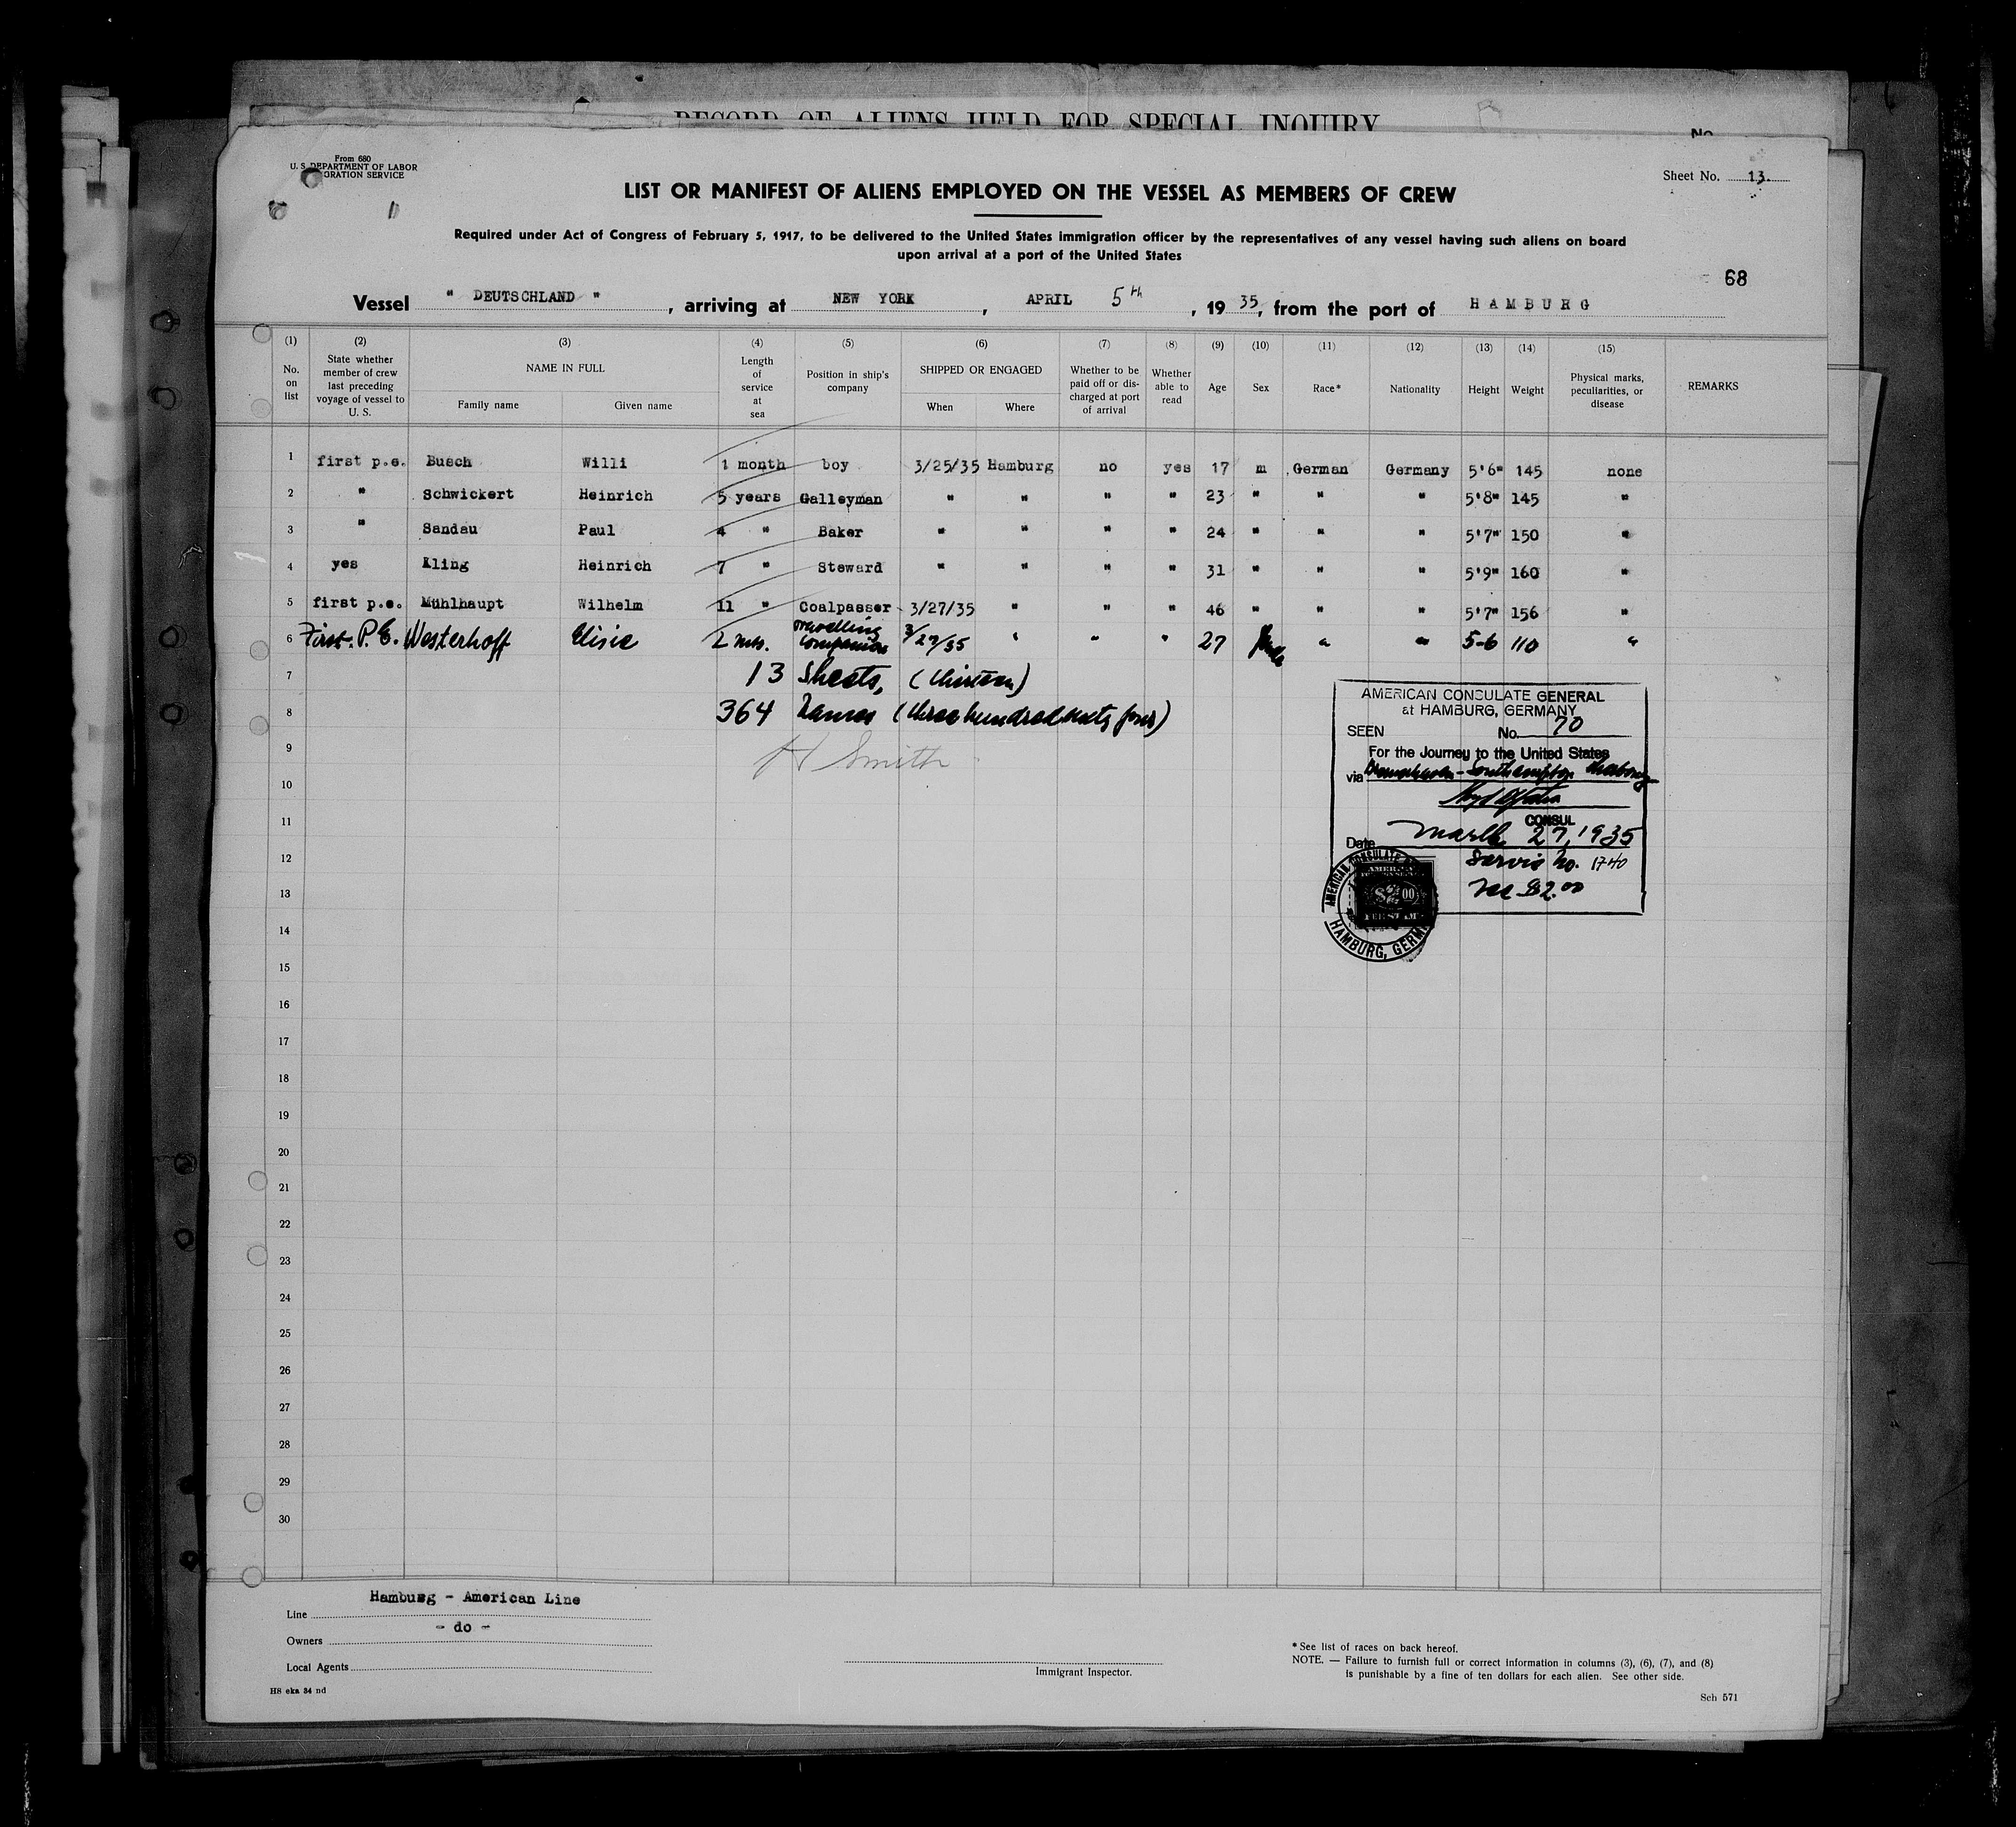 RECORD OF ALIENS HELD FOR SPECIAL INQUIRY
No.
From 680
U. S. DEPARTMENT OF LABOR
ORATION SERVICE
Sheet No. 13.
LIST OR MANIFEST OF ALIENS EMPLOYED ON THE VESSEL AS MEMBERS OF CREW
Required under Act of Congress of February 5, 1917, to be delivered to the United States immigration officer by the representatives of any vessel having such aliens on board
upon arrival at a port of the United States
68
Vessel " DEUTSCHLAND ", arriving at NEW YORK, APRIL 5th, 1935, from the port of HAMBURG
(1) (2) (3) (4) (5) (6) (7) (8) (9) (10) (11) (12) (13) (14) (15)
No. on list
State whether member of crew last preceding voyage of vessel to U. S.
NAME IN FULL
Family name Given name
Length of service at sea
Position in ship's company
SHIPPED OR ENGAGED
When Where
Whether to be paid off or dis-charged at port of arrival
Whether able to read
Age Sex Race* Nationality Height Weight
Physical marks, peculiarities, or disease
REMARKS
1 first p.e. Busch Willi 1 month boy 3/25/35 Hamburg no yes 17 m German Germany 5'6" 145 none
2 " Schwickert Heinrich 5 years Galleyman " " " " 23 " " " 5'8" 145 "
3 " Sandau Paul 4 " Baker " " " " 24 " " " 5'7" 150 "
4 yes Kling Heinrich 7 " Steward " " " " 31 " " " 5'9" 160 "
5 first p.e. Mühlhaupt Wilhelm 11 " Coalpasser 3/27/35 " " " 46 " " " 5'7" 156 "
6 First. P. E. Westerhoff Elisie 2 mts. travelling companion 3/27/35 " " " 27 " " 5-6 110 "
7 13 Sheets, (thirteen)
8 364 Names (three hundred sixty four)
9 H Smith
10
11
12
13
14
15
16
17
18
19
20
21
22
23
24
25
26
27
28
29
30
AMERICAN CONSULATE GENERAL
at HAMBURG, GERMANY
SEEN No. 70
For the Journey to the United States
via Southampton Cherbourg
CONSUL
Date March 27, 1935
Service No. 1740
Fee $2.00
AMERICAN CONSULATE
$2.00
FEE STAMP
HAMBURG, GERM
Line Hamburg - American Line
Owners - do -
Local Agents
Immigrant Inspector.
* See list of races on back hereof.
NOTE. — Failure to furnish full or correct information in columns (3), (6), (7), and (8)
is punishable by a fine of ten dollars for each alien. See other side.
H8 eka 34 nd
Sch 571